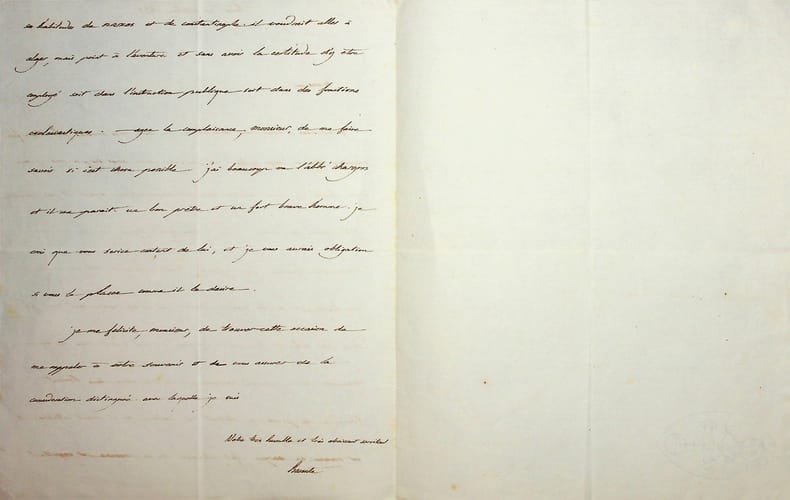 en habitudes de naxos et de constantinople. il voudrait aller à
alger, mais point à l'aventure et sans avoir la certitude d'y être
employé soit dans l'instruction publique soit dans des fonctions
ecclesiastiques. ayez la complaisance, monsieur, de me faire
savoir si c'est chose possible j'ai beaucoup vu l'abbé
et il me parait un bon prêtre et un fort brave homme. je
crois que vous seriez content de lui, et je vous aurais obligation
si vous le placez comme il le desire.
je me felicite, monsieur, de trouver cette occasion de
me rappeler à votre souvenir et de vous assurer de la
consideration distinguée avec laquelle je suis
Votre très humble et très obeissant serviteur